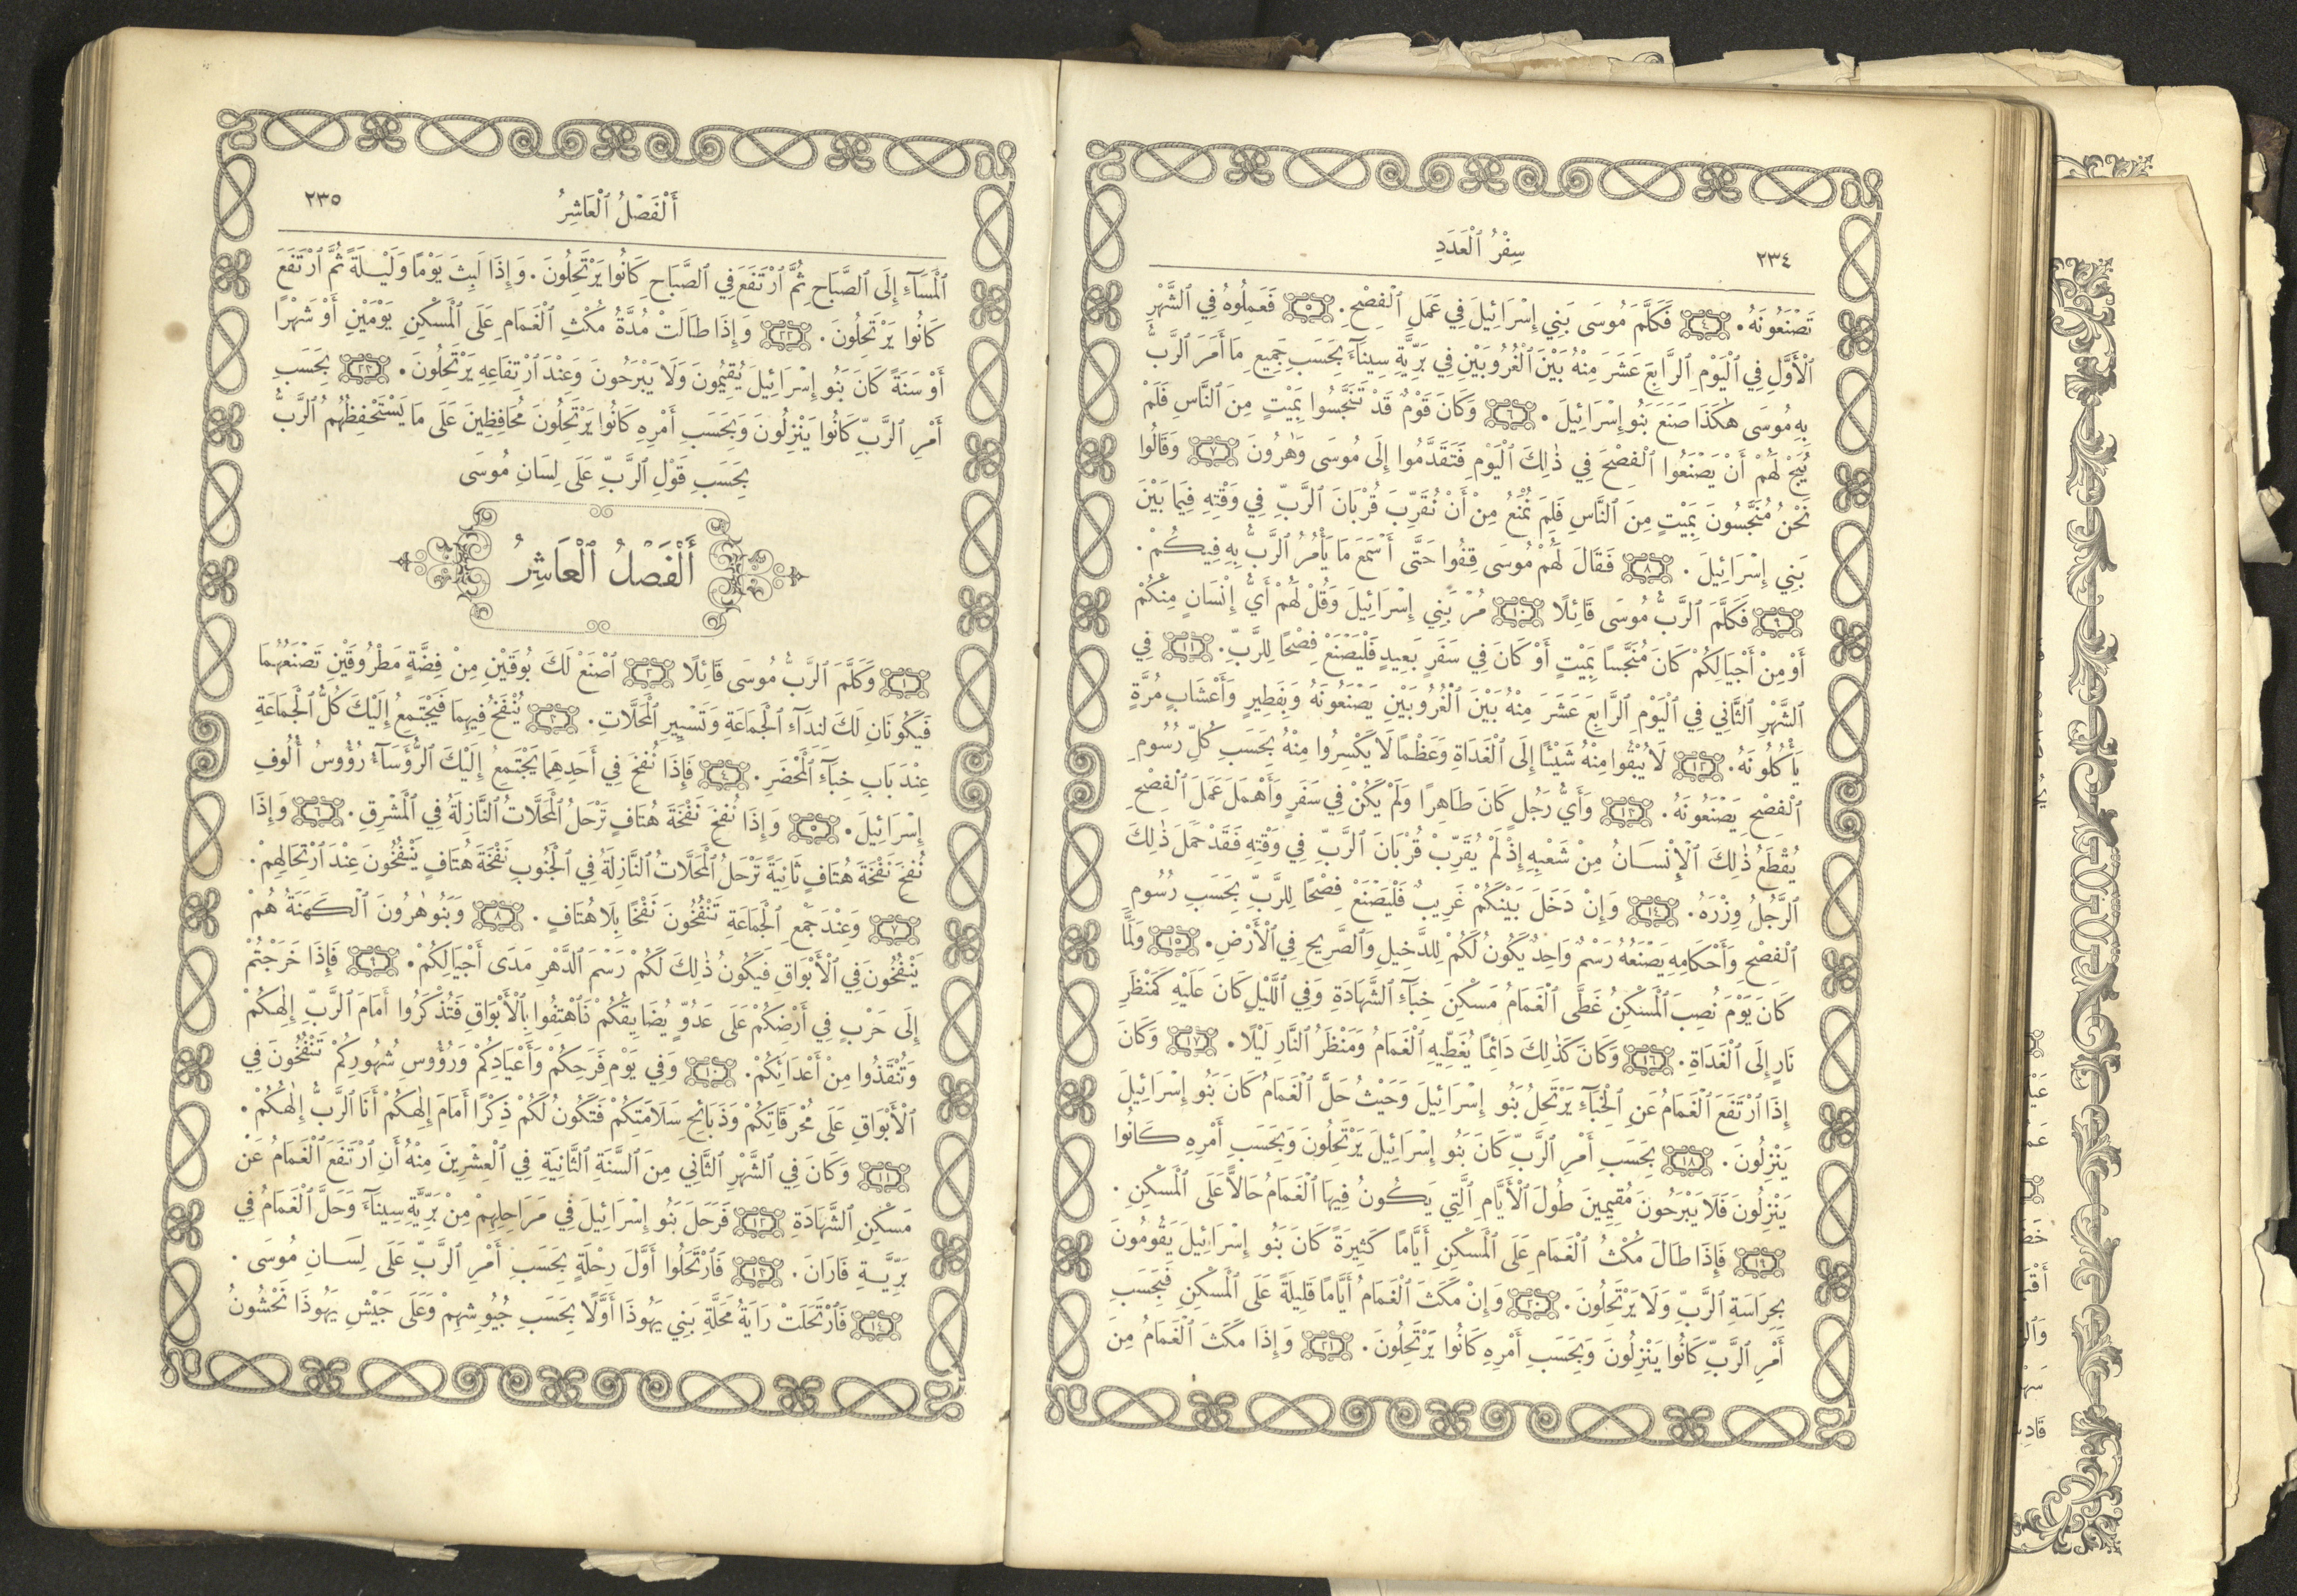 ٢٣٤ سِفْرُ ٱلْعَدَدِ
تَصْنَعُونَهُ. ﴿٤﴾ فَكَلَّمَ مُوسَى بَنِي إِسْرَائِيلَ فِي عَمَلِ ٱلْفِصْحِ. ﴿٥﴾ فَعَمِلُوهُ فِي ٱلشَّهْرِ
ٱلْأَوَّلِ فِي ٱلْيَوْمِ ٱلرَّابِعَ عَشَرَ مِنْهُ بَيْنَ ٱلْغُرُوبَيْنِ فِي بَرِّيَّةِ سِينَآءَ بِحَسَبِ جَمِيعِ مَا أَمَرَ ٱلرَّبُّ
بِهِ مُوسَى هٰكَذَا صَنَعَ بَنُو إِسْرَائِيلَ. ﴿٦﴾ وَكَانَ قَوْمٌ قَدْ تَنَجَّسُوا بِمَيْتٍ مِنَ ٱلنَّاسِ فَلَمْ
يُبَحْ لَهُمْ أَنْ يَصْنَعُوا ٱلْفِصْحَ فِي ذٰلِكَ ٱلْيَوْمِ فَتَقَدَّمُوا إِلَى مُوسَى وَهٰرُونَ ﴿٧﴾ وَقَالُوا
نَحْنُ مُتَنَجِّسُونَ بِمَيْتٍ مِنَ ٱلنَّاسِ فَلِمَ نُمْنَعُ مِنْ أَنْ نُقَرِّبَ قُرْبَانَ ٱلرَّبِّ فِي وَقْتِهِ فِيمَا بَيْنَ
بَنِي إِسْرَائِيلَ. ﴿٨﴾ فَقَالَ لَهُمْ مُوسَى قِفُوا حَتَّى أَسْمَعَ مَا يَأْمُرُ ٱلرَّبُّ بِهِ فِيكُمْ.
﴿٩﴾ فَكَلَّمَ ٱلرَّبُّ مُوسَى قَائِلًا ﴿١٠﴾ مُرْ بَنِي إِسْرَائِيلَ وَقُلْ لَهُمْ أَيُّ إِنْسَانٍ مِنْكُمْ
أَوْ مِنْ أَجْيَالِكُمْ كَانَ مُتَنَجِّسًا بِمَيْتٍ أَوْ كَانَ فِي سَفَرٍ بَعِيدٍ فَلْيَصْنَعْ فِصْحًا لِلرَّبِّ. ﴿١١﴾ فِي
ٱلشَّهْرِ ٱلثَّانِي فِي ٱلْيَوْمِ ٱلرَّابِعَ عَشَرَ مِنْهُ بَيْنَ ٱلْغُرُوبَيْنِ يَصْنَعُونَهُ وَبِفَطِيرٍ وَأَعْشَابٍ مُرَّةٍ
يَأْكُلُونَهُ. ﴿١٢﴾ لَا يُبْقُوا مِنْهُ شَيْئًا إِلَى ٱلْغَدَاةِ وَعَظْمًا لَا يَكْسِرُوا مِنْهُ بِحَسَبِ كُلِّ رُسُومِ
ٱلْفِصْحِ يَصْنَعُونَهُ. ﴿١٣﴾ وَأَيُّ رَجُلٍ كَانَ طَاهِرًا وَلَمْ يَكُنْ فِي سَفَرٍ وَأَهْمَلَ عَمَلَ ٱلْفِصْحِ
يُقْطَعُ ذٰلِكَ ٱلْإِنْسَانُ مِنْ شَعْبِهِ إِذْ لَمْ يُقَرِّبْ قُرْبَانَ ٱلرَّبِّ فِي وَقْتِهِ فَقَدْ حَمَلَ ذٰلِكَ
ٱلرَّجُلُ وِزْرَهُ. ﴿١٤﴾ وَإِنْ دَخَلَ بَيْنَكُمْ غَرِيبٌ فَلْيَصْنَعْ فِصْحًا لِلرَّبِّ بِحَسَبِ رُسُومِ
ٱلْفِصْحِ وَأَحْكَامِهِ يَصْنَعُهُ رَسْمٌ وَاحِدٌ يَكُونُ لَكُمْ لِلدَّخِيلِ وَٱلصَّرِيحِ فِي ٱلْأَرْضِ. ﴿١٥﴾ وَلَمَّا
كَانَ يَوْمَ نُصِبَ ٱلْمَسْكِنُ غَطَّى ٱلْغَمَامُ مَسْكِنَ خِبَآءِ ٱلشَّهَادَةِ وَفِي ٱللَّيْلِ كَانَ عَلَيْهِ كَمَنْظَرِ
نَارٍ إِلَى ٱلْغَدَاةِ. ﴿١٦﴾ وَكَانَ كَذٰلِكَ دَائِمًا يُغَطِّيهِ ٱلْغَمَامُ وَمَنْظَرُ ٱلنَّارِ لَيْلًا. ﴿١٧﴾ وَكَانَ
إِذَا ٱرْتَفَعَ ٱلْغَمَامُ عَنِ ٱلْخِبَآءِ يَرْتَحِلُ بَنُو إِسْرَائِيلَ وَحَيْثُ حَلَّ ٱلْغَمَامُ كَانَ بَنُو إِسْرَائِيلَ
يَنْزِلُونَ. ﴿١٨﴾ بِحَسَبِ أَمْرِ ٱلرَّبِّ كَانَ بَنُو إِسْرَائِيلَ يَرْتَحِلُونَ وَبِحَسَبِ أَمْرِهِ كَانُوا
يَنْزِلُونَ فَلَا يَبْرَحُونَ مُقِيمِينَ طُولَ ٱلْأَيَّامِ ٱلَّتِي يَكُونُ فِيهَا ٱلْغَمَامُ حَالًّا عَلَى ٱلْمَسْكِنِ.
﴿١٩﴾ فَإِذَا طَالَ مُكْثُ ٱلْغَمَامِ عَلَى ٱلْمَسْكِنِ أَيَّامًا كَثِيرَةً كَانَ بَنُو إِسْرَائِيلَ يَقُومُونَ
بِحِرَاسَةِ ٱلرَّبِّ وَلَا يَرْتَحِلُونَ. ﴿٢٠﴾ وَإِنْ مَكَثَ ٱلْغَمَامُ أَيَّامًا قَلِيلَةً عَلَى ٱلْمَسْكِنِ فَبِحَسَبِ
أَمْرِ ٱلرَّبِّ كَانُوا يَنْزِلُونَ وَبِحَسَبِ أَمْرِهِ كَانُوا يَرْتَحِلُونَ. ﴿٢١﴾ وَإِذَا مَكَثَ ٱلْغَمَامُ مِنَ
أَلْفَصْلُ ٱلْعَاشِرُ ٢٣٥
ٱلْمَسَآءِ إِلَى ٱلصَّبَاحِ ثُمَّ ٱرْتَفَعَ فِي ٱلصَّبَاحِ كَانُوا يَرْتَحِلُونَ. وَإِذَا لَبِثَ يَوْمًا وَلَيْلَةً ثُمَّ ٱرْتَفَعَ
كَانُوا يَرْتَحِلُونَ. ﴿٢٢﴾ وَإِذَا طَالَتْ مُدَّةُ مُكْثِ ٱلْغَمَامِ عَلَى ٱلْمَسْكِنِ يَوْمَيْنِ أَوْ شَهْرًا
أَوْ سَنَةً كَانَ بَنُو إِسْرَائِيلَ يُقِيمُونَ وَلَا يَبْرَحُونَ وَعِنْدَ ٱرْتِفَاعِهِ يَرْتَحِلُونَ. ﴿٢٣﴾ بِحَسَبِ
أَمْرِ ٱلرَّبِّ كَانُوا يَنْزِلُونَ وَبِحَسَبِ أَمْرِهِ كَانُوا يَرْتَحِلُونَ مُحَافِظِينَ عَلَى مَا يَسْتَحْفِظُهُمُ ٱلرَّبُّ
بِحَسَبِ قَوْلِ ٱلرَّبِّ عَلَى لِسَانِ مُوسَى
أَلْفَصْلُ ٱلْعَاشِرُ
﴿١﴾ وَكَلَّمَ ٱلرَّبُّ مُوسَى قَائِلًا ﴿٢﴾ ٱصْنَعْ لَكَ بُوقَيْنِ مِنْ فِضَّةٍ مَطْرُوقَيْنِ تَصْنَعُهُمَا
فَيَكُونَانِ لَكَ لِنِدَآءِ ٱلْجَمَاعَةِ وَتَسْيِيرِ ٱلْمَحَلَّاتِ. ﴿٣﴾ يُنْفَخُ فِيهِمَا فَيَجْتَمِعُ إِلَيْكَ كُلُّ ٱلْجَمَاعَةِ
عِنْدَ بَابِ خِبَآءِ ٱلْمَحْضَرِ. ﴿٤﴾ فَإِذَا نُفِخَ فِي أَحَدِهِمَا يَجْتَمِعُ إِلَيْكَ ٱلرُّؤَسَآءُ رُؤُوسُ أُلُوفِ
إِسْرَائِيلَ. ﴿٥﴾ وَإِذَا نُفِخَ نَفْخَةَ هُتَافٍ تَرْحَلُ ٱلْمَحَلَّاتُ ٱلنَّازِلَةُ فِي ٱلْمَشْرِقِ. ﴿٦﴾ وَإِذَا
نُفِخَ نَفْخَةَ هُتَافٍ ثَانِيَةً تَرْحَلُ ٱلْمَحَلَّاتُ ٱلنَّازِلَةُ فِي ٱلْجَنُوبِ نَفْخَةَ هُتَافٍ يَنْفُخُونَ عِنْدَ ٱرْتِحَالِهِمْ.
﴿٧﴾ وَعِنْدَ جَمْعِ ٱلْجَمَاعَةِ تَنْفُخُونَ نَفْخًا بِلَا هُتَافٍ. ﴿٨﴾ وَبَنُو هٰرُونَ ٱلْكَهَنَةُ هُمْ
يَنْفُخُونَ فِي ٱلْأَبْوَاقِ فَيَكُونُ ذٰلِكَ لَكُمْ رَسْمَ ٱلدَّهْرِ مَدَى أَجْيَالِكُمْ. ﴿٩﴾ فَإِذَا خَرَجْتُمْ
إِلَى حَرْبٍ فِي أَرْضِكُمْ عَلَى عَدُوٍّ يُضَايِقُكُمْ فَٱهْتِفُوا بِٱلْأَبْوَاقِ فَتُذْكَرُوا أَمَامَ ٱلرَّبِّ إِلٰهِكُمْ
وَتُنْقَذُوا مِنْ أَعْدَائِكُمْ. ﴿١٠﴾ وَفِي يَوْمِ فَرَحِكُمْ وَأَعْيَادِكُمْ وَرُؤُوسِ شُهُورِكُمْ تَنْفُخُونَ فِي
ٱلْأَبْوَاقِ عَلَى مُحْرَقَاتِكُمْ وَذَبَائِحِ سَلَامَتِكُمْ فَتَكُونُ لَكُمْ ذِكْرًا أَمَامَ إِلٰهِكُمْ أَنَا ٱلرَّبُّ إِلٰهُكُمْ.
﴿١١﴾ وَكَانَ فِي ٱلشَّهْرِ ٱلثَّانِي مِنَ ٱلسَّنَةِ ٱلثَّانِيَةِ فِي ٱلْعِشْرِينَ مِنْهُ أَنِ ٱرْتَفَعَ ٱلْغَمَامُ عَنْ
مَسْكِنِ ٱلشَّهَادَةِ ﴿١٢﴾ فَرَحَلَ بَنُو إِسْرَائِيلَ فِي مَرَاحِلِهِمْ مِنْ بَرِّيَّةِ سِينَآءَ وَحَلَّ ٱلْغَمَامُ فِي
بَرِّيَّةِ فَارَانَ. ﴿١٣﴾ فَٱرْتَحَلُوا أَوَّلَ رِحْلَةٍ بِحَسَبِ أَمْرِ ٱلرَّبِّ عَلَى لِسَانِ مُوسَى.
﴿١٤﴾ فَٱرْتَحَلَتْ رَايَةُ مَحَلَّةِ بَنِي يَهُوذَا أَوَّلًا بِحَسَبِ جُيُوشِهِمْ وَعَلَى جَيْشِ يَهُوذَا نَحْشُونُ